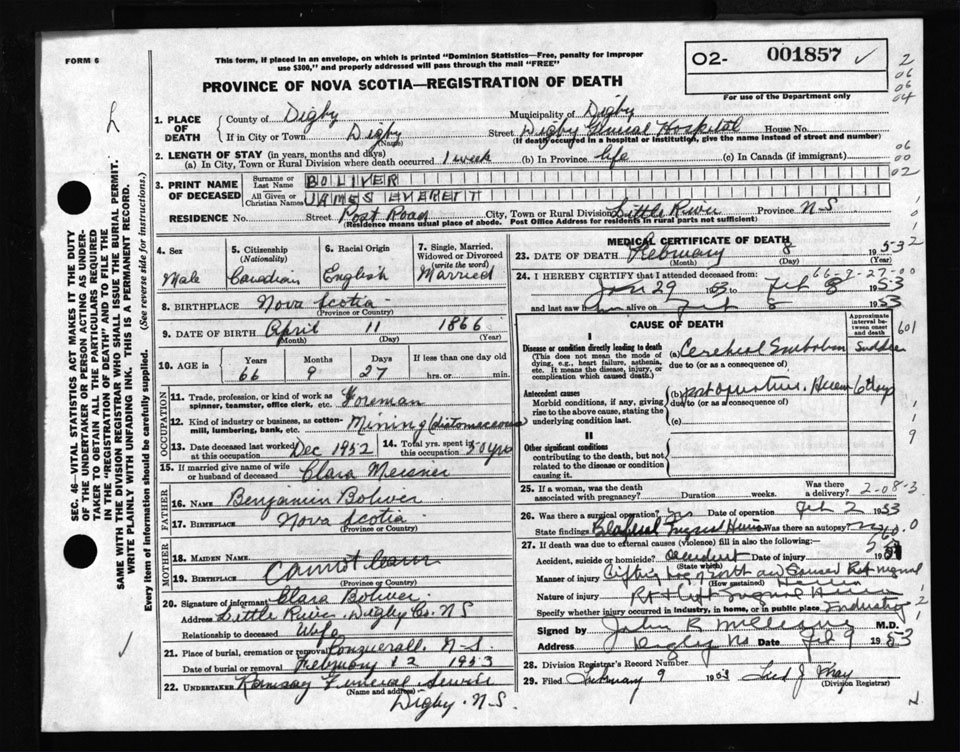 FORM 6
This form, if placed in an envelope, on which is printed "Dominion Statistics—Free, penalty for improper
use $300," and properly addressed will pass through the mail "FREE"
O2- 001857 ✓
For use of the Department only
PROVINCE OF NOVA SCOTIA—REGISTRATION OF DEATH
1. PLACE OF DEATH
County of Digby Municipality of Digby
If in City or Town Digby (Name) Street Digby General Hospital House No.
(If death occurred in a hospital or institution, give the name instead of street and number)
2. LENGTH OF STAY (in years, months and days)
(a) In City, Town or Rural Division where death occurred 1 week (b) In Province life (c) In Canada (if immigrant)
3. PRINT NAME OF DECEASED
Surname or Last Name BOLIVER
All Given or Christian Names JAMES EVERETT
RESIDENCE No. Street Post Road City, Town or Rural Division Little River Province N-S
(Residence means usual place of abode. Post Office Address for residents in rural parts not sufficient)
4. Sex Male
5. Citizenship (Nationality) Canadian
6. Racial Origin English
7. Single, Married, Widowed or Divorced (write the word) Married
8. BIRTHPLACE Nova Scotia
(Province or Country)
9. DATE OF BIRTH April 11 1866
(Month) (Day) (Year)
10. AGE in Years 66 Months 9 Days 27 If less than one day old hrs. or min.
OCCUPATION
11. Trade, profession, or kind of work as spinner, teamster, office clerk, etc. Foreman
12. Kind of industry or business, as cotton-mill, lumbering, bank, etc. Mining
13. Date deceased last worked at this occupation Dec 1952
14. Total yrs. spent in this occupation 50 yrs
15. If married give name of wife or husband of deceased Clara Meisner
FATHER
16. NAME Benjamin Boliver
17. BIRTHPLACE Nova Scotia
(Province or Country)
MOTHER
18. MAIDEN NAME
19. BIRTHPLACE Cannot learn
(Province or Country)
20. Signature of informant Clara Boliver
Address Little River, Digby Co. N-S
Relationship to deceased Wife
21. Place of burial, cremation or removal Conquerall, N-S.
Date of burial or removal February 12 1953
22. UNDERTAKER Ramsay Funeral Service
(Name and address)
Digby. N-S.
MEDICAL CERTIFICATE OF DEATH
23. DATE OF DEATH February 8 1953
(Month) (Day)
66-9-27-00
24. I HEREBY CERTIFY that I attended deceased from:
Jan 29 1953 to Feb 8 1953
and last saw him alive on Feb 8 1953
CAUSE OF DEATH
Approximate interval between onset and death
I
Disease or condition directly leading to death
(This does not mean the mode of dying, e.g., heart failure, asthenia, etc. It means the disease, injury, or complication which caused death.)
(a) Cerebral Embolism
due to (or as a consequence)
Antecedent causes
Morbid conditions, if any, giving rise to the above cause, stating the underlying condition last.
(b) post operative. Hernia 6 days
due to (or as a consequence)
(c)
II
Other significant conditions
contributing to the death, but not related to the disease or condition causing it.
25. If a woman, was the death associated with pregnancy? Duration weeks. Was there a delivery?
2-08-3
26. Was there a surgical operation? yes Date of operation Feb 2 1953
State findings Was there an autopsy? no
27. If death was due to external causes (violence) fill in also:
Accident, suicide or homicide? Accident Date of injury 195
(State which)
Manner of injury
(How sustained)
Nature of injury Rt & left Inguinal Hernia
Specify whether injury occurred in industry, in home, or in public place Industry
Signed by M.D.
Address Digby NS Date Feb 9 1953
28. Division Registrar's Record Number
29. Filed February 9 1953
(Division Registrar)
SEC. 46—VITAL STATISTICS ACT MAKES IT THE DUTY
OF THE UNDERTAKER OR PERSON ACTING AS UNDER-
TAKER TO OBTAIN ALL THE PARTICULARS REQUIRED
IN THE "REGISTRATION OF DEATH" AND TO FILE THE
SAME WITH THE DIVISION REGISTRAR WHO SHALL ISSUE THE BURIAL PERMIT.
WRITE PLAINLY WITH UNFADING INK. THIS IS A PERMANENT RECORD.
Every item of information should be carefully supplied. (See reverse side for instructions.)